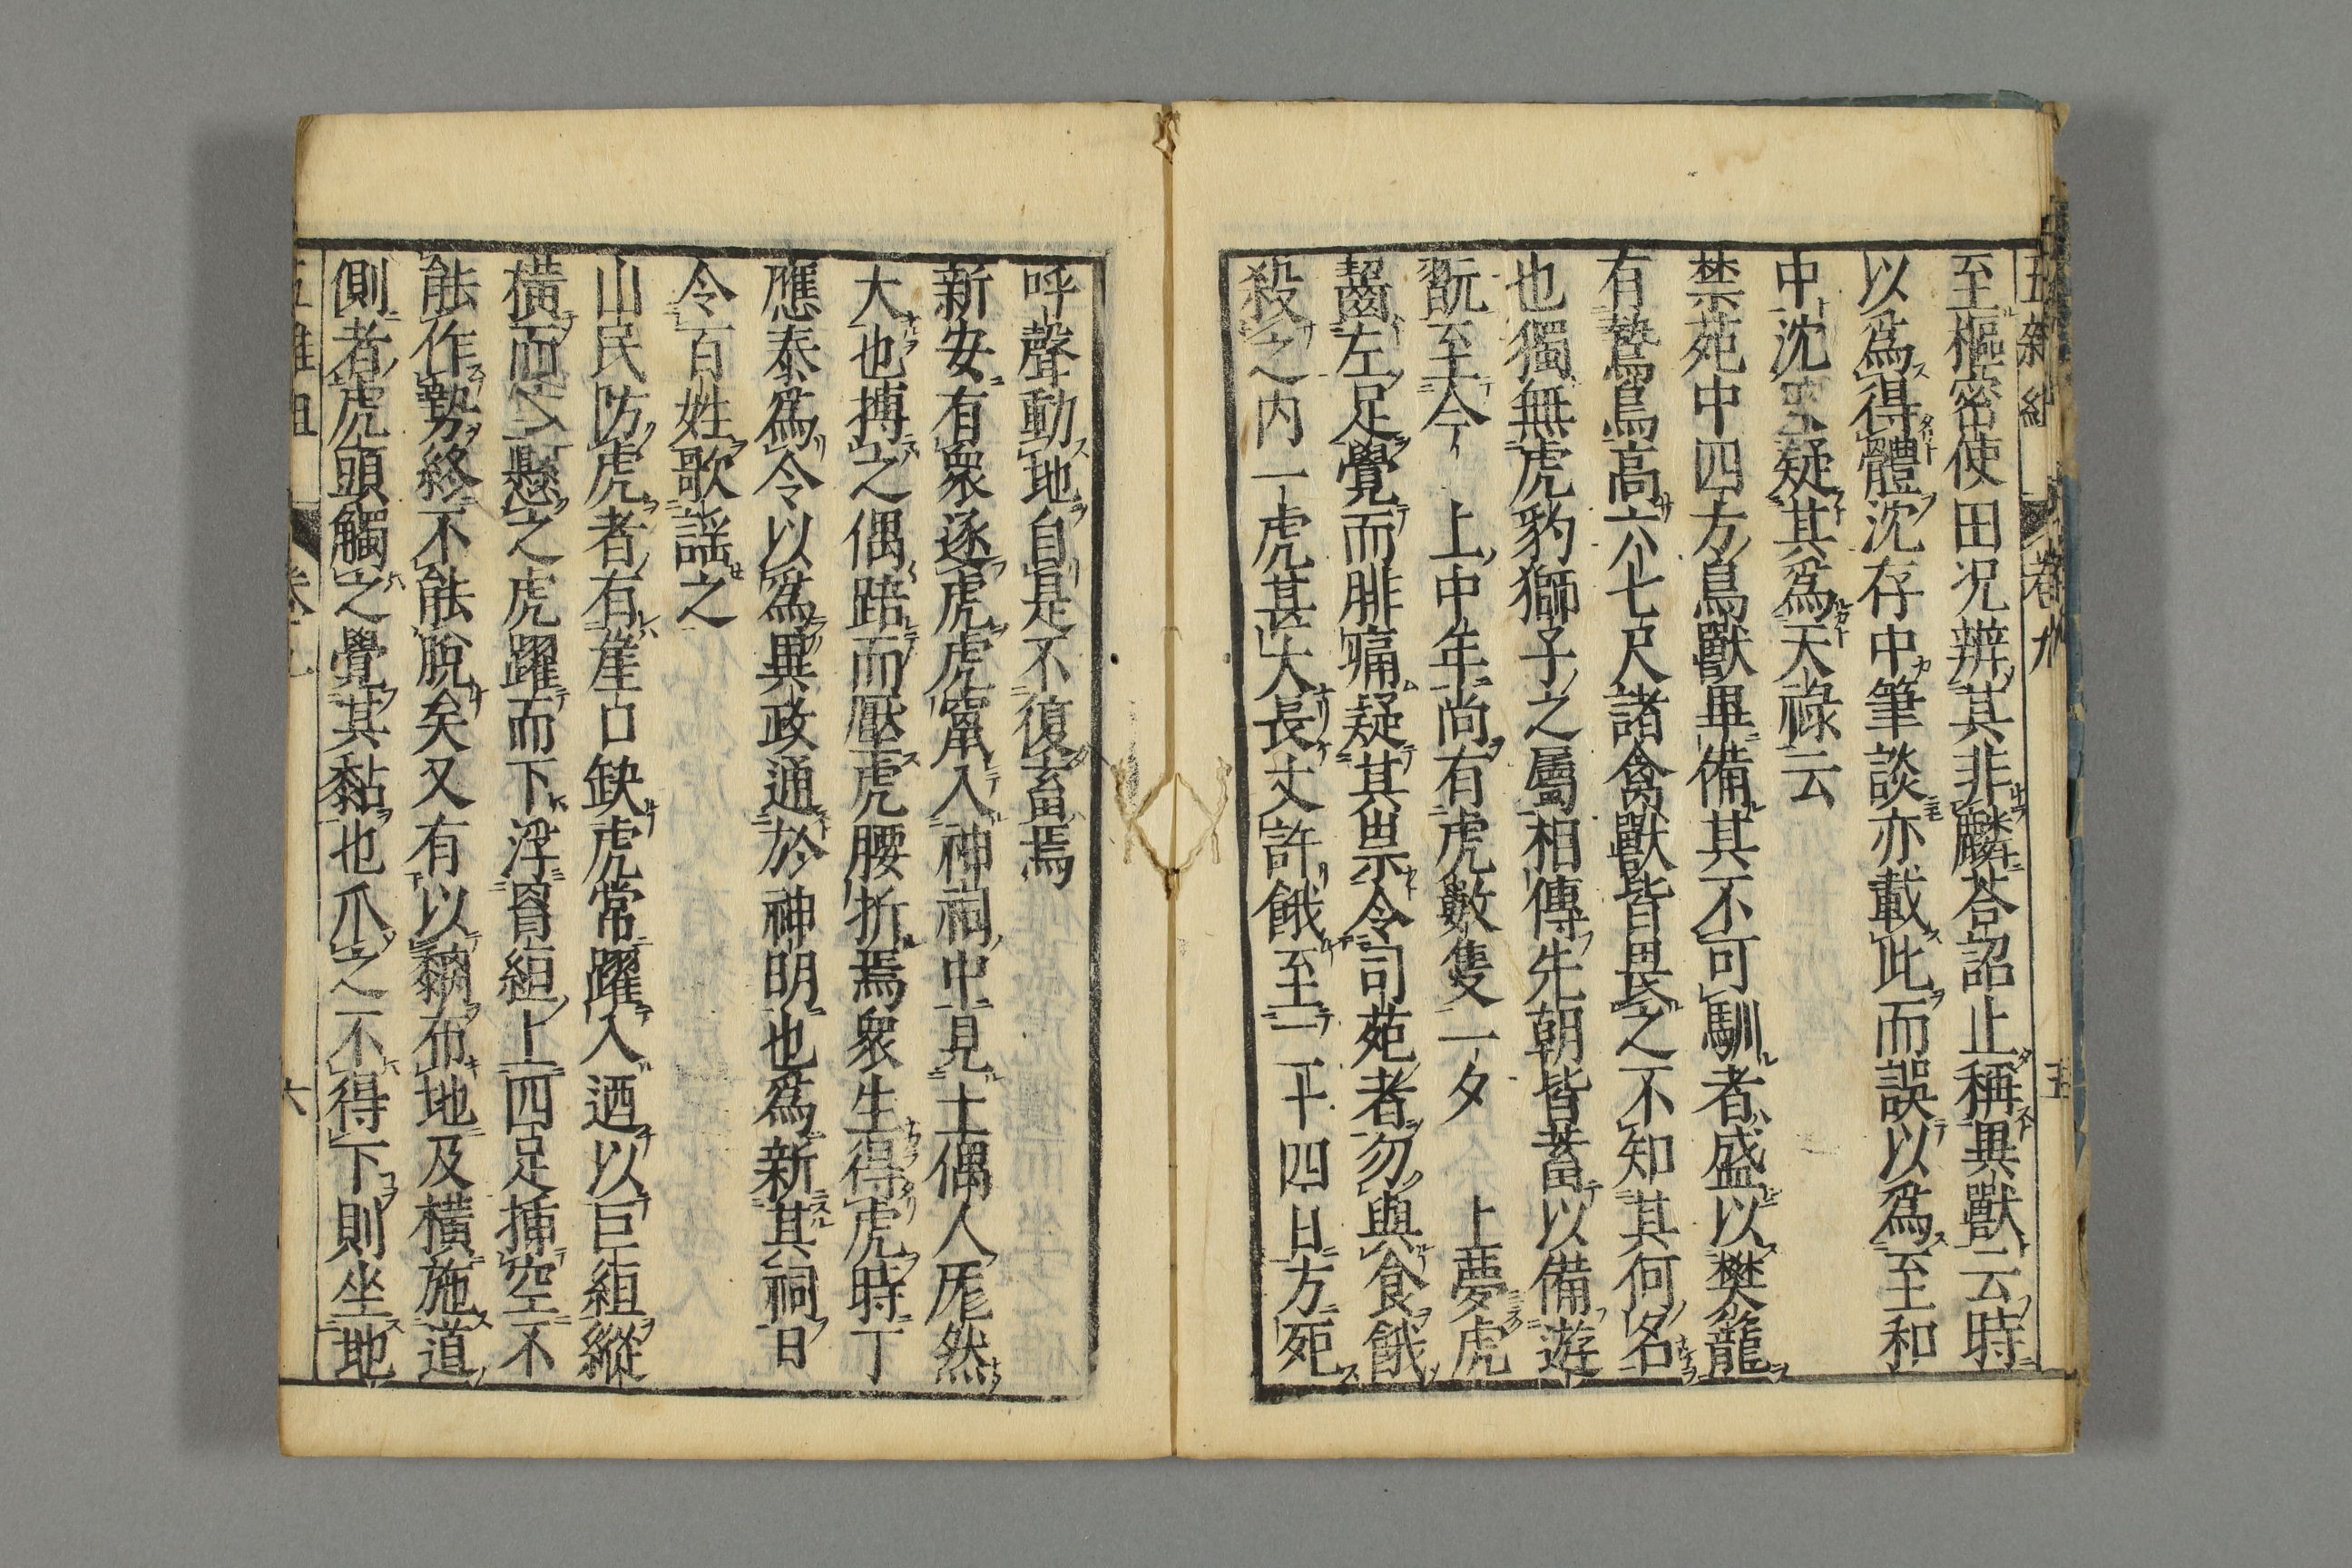 至樞密使田況辨其非麟荅詔止稱異獸云時
以爲得體沈存中筆談亦載此而誤以爲至和
中沈疑其爲天祿云
禁苑中四方鳥獸畢備其不可馴者盛以樊籠
有鷙鳥高六七尺諸禽獸皆畏之不知其何名
也獨無虎豹獅子之屬相傳先朝皆蓄以備遊
翫至今上中年尚有虎數隻一夕上夢虎
齧左足覺而腓痛疑其祟令司苑者勿與食餓
殺之内一虎甚大長丈許餓至一十四日方死
呼聲動地自是不復畜焉
新安有衆逐虎虎竄入神祠中見土偶人厖然
大也搏之偶踣而壓虎腰折焉衆生得虎時丁
應泰爲令以爲異政通於神明也爲新其祠日
令百姓歌謡之
山民防虎者有崖口缺虎常躍入迺以巨絙縱
橫而懸之虎躍而下浮罥絙上四足揷空不
能作勢終不能脫矣又有以黐布地及橫施道
側者虎頭觸之覺其黏也爪之不得下則坐地
五雜俎
卷九
五
六